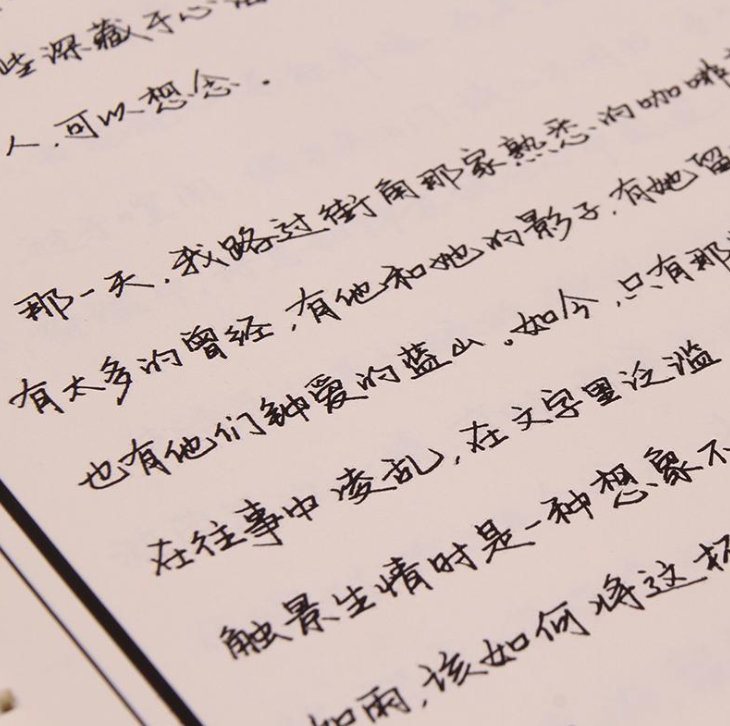 些深藏于心
人,可以想念.
那一天,我路过街角那家熟悉的咖啡
有太多的曾经,有他和她的影子,有她留
也有他们钟爱的蓝山。如今,只有那
在往事中凌乱,在文字里泛滥
触景生情时是一种想象不
如雨,该如何将这杯